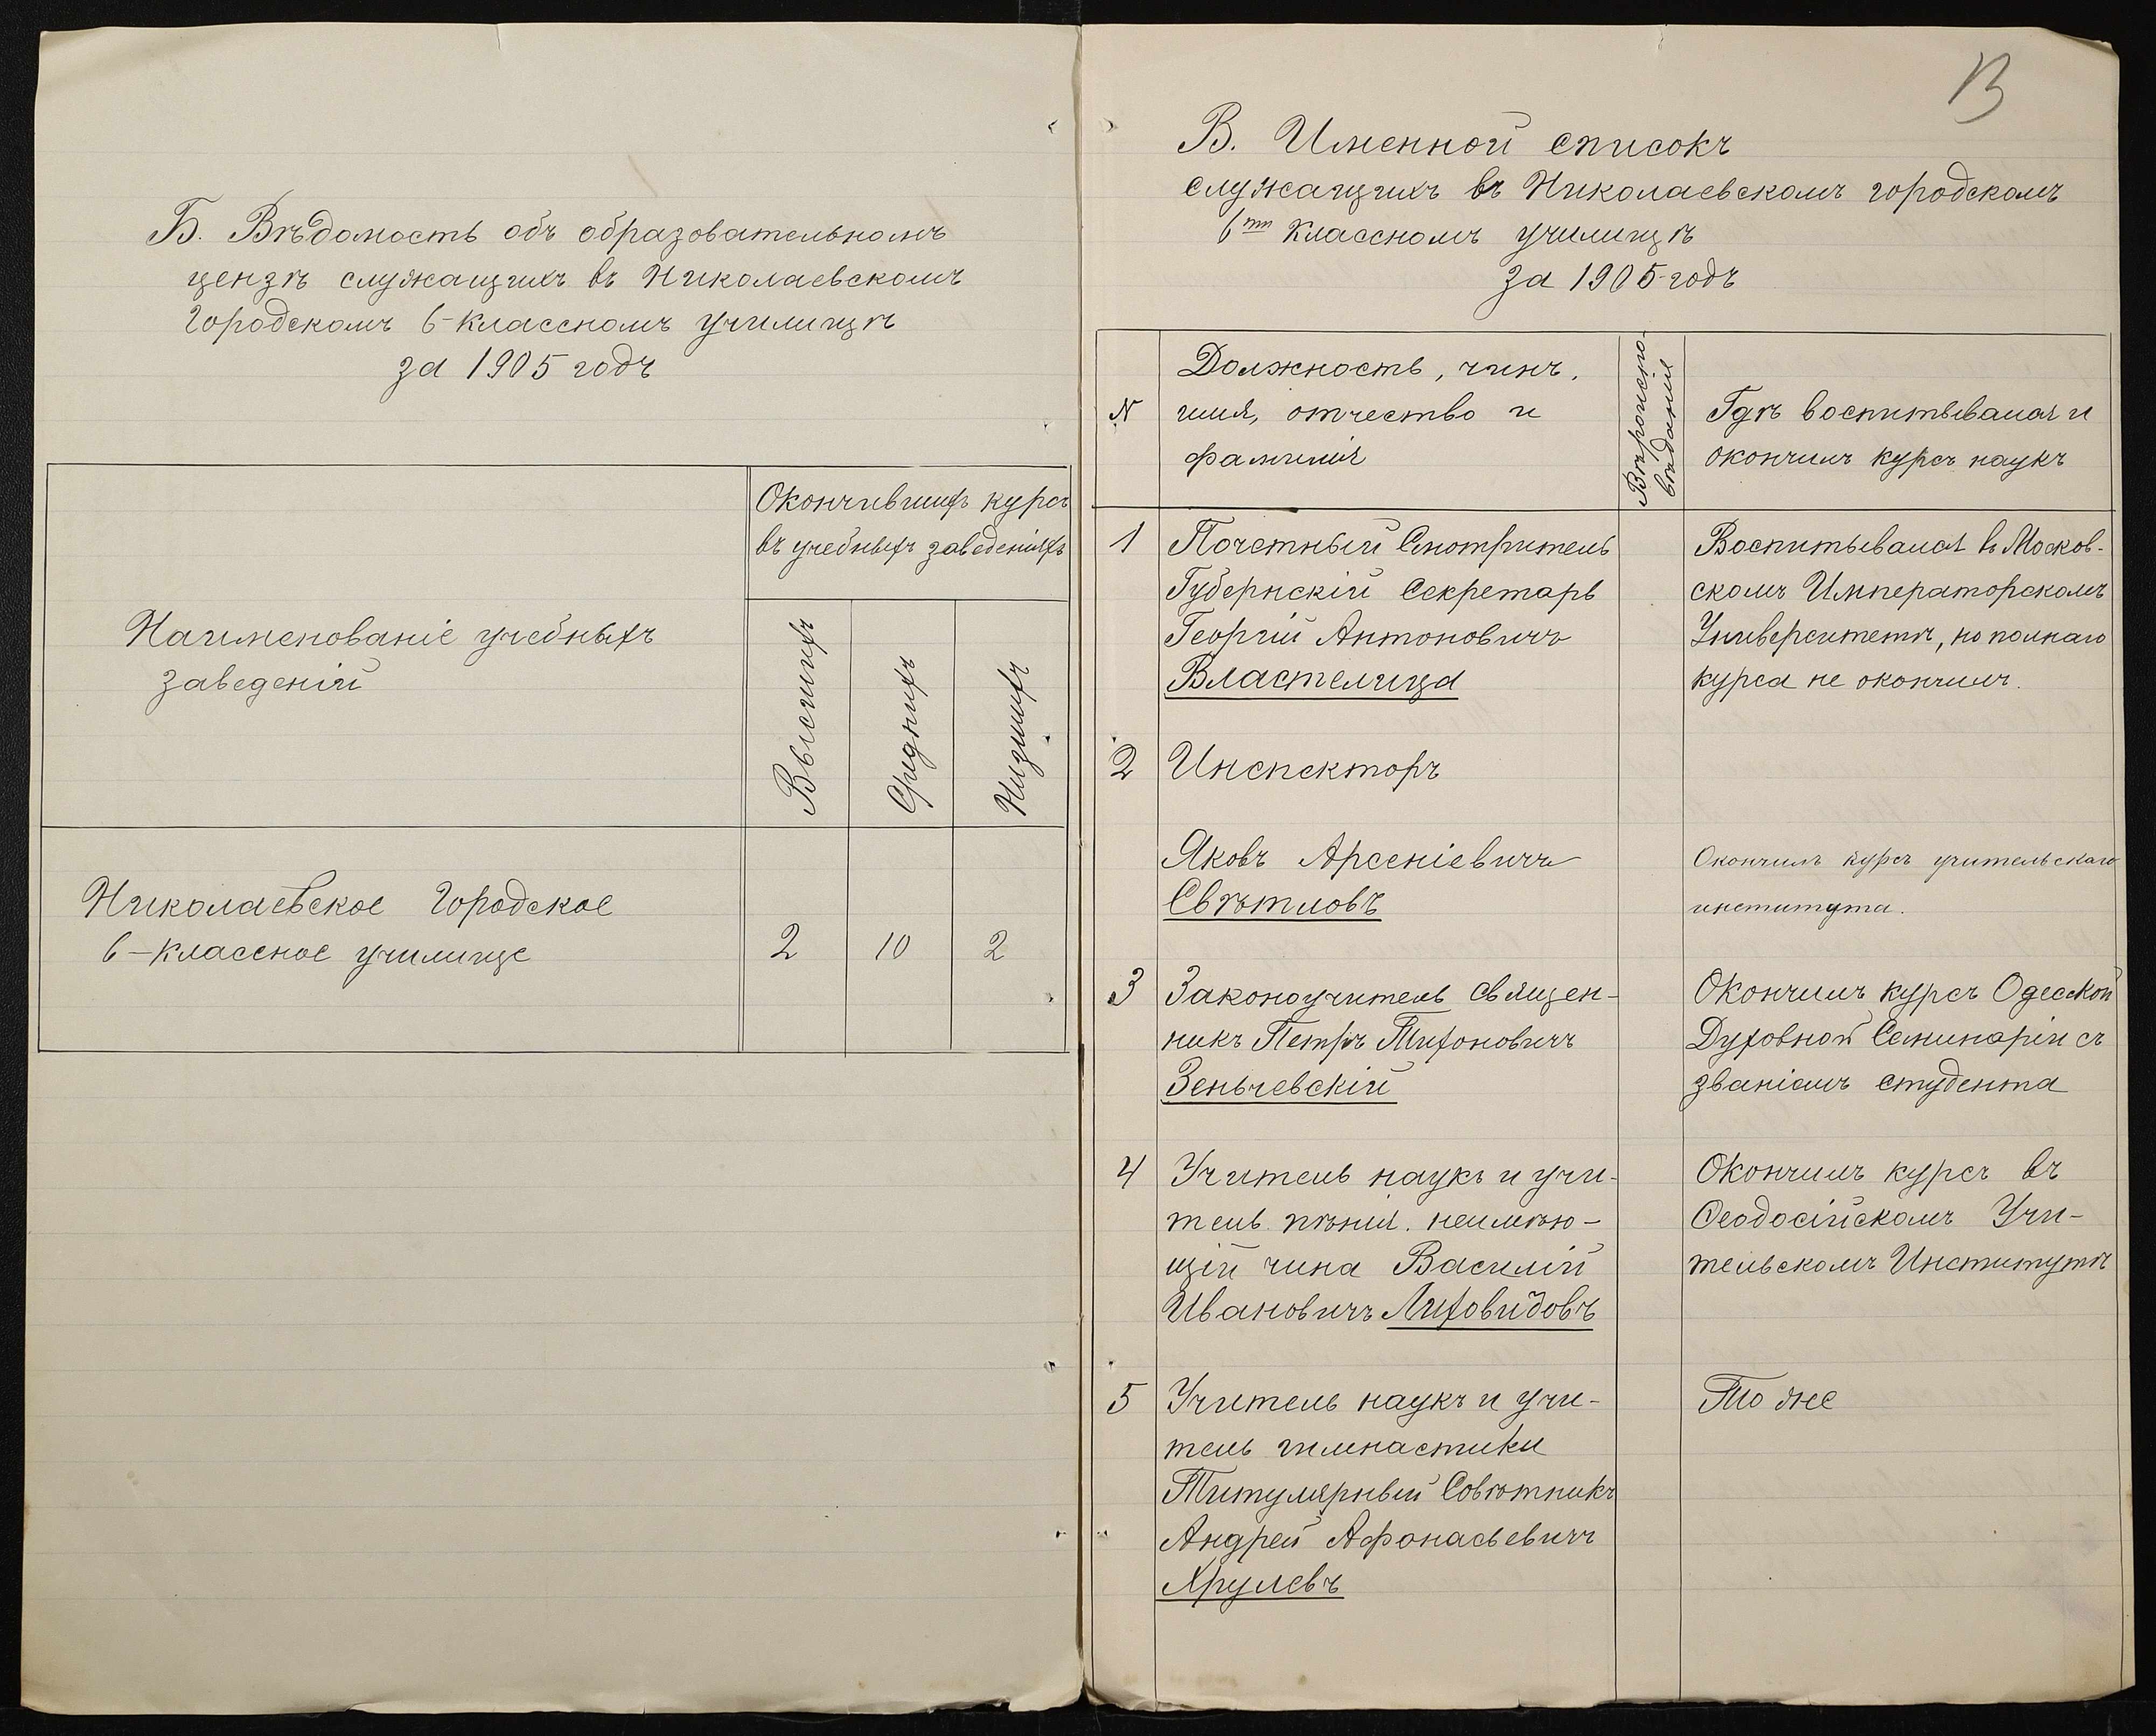 Б. Вѣдомость объ образовательномъ
цензѣ служащихъ въ Николаевскомъ
Городскомъ 6-классномъ училищѣ
за 1905 годъ
Наименованіе учебныхъ
заведеній
Окончившихъ курсъ
въ учебныхъ заведеніяхъ
Высшихъ
Среднихъ
Низшихъ
Николаевское Городское
6-классное училище
2
10
2
13
В. Именной списокъ
служащихъ въ Николаевскомъ городскомъ
6ти классномъ училищѣ
за 1905 годъ
N
Должность, чинъ,
имя, отчество и
фамилія
Вѣроиспо-
вѣданія
Гдѣ воспитывался и
окончилъ курсъ наукъ
1
Почетный Смотритель
Губернскій Секретарь
Георгій Антоновичъ
Властелица
Воспитывался въ Москов-
скомъ Императорскомъ
Университетѣ, но полнаго
курса не окончилъ.
2
Инспекторъ
Яковъ Арсеніевичъ
Свѣтловъ
Окончилъ курсъ учительскаго
института.
3
Законоучитель священ-
никъ Петръ Тихоновичъ
Зеньчевскій
Окончилъ курсъ Одесской
Духовной Семинаріи съ
званіемъ студента
4
Учитель наукъ и учи-
тель пѣнія. неимѣю-
щій чина Василій
Ивановичъ Лиховидовъ
Окончилъ курсъ въ
Ѳеодосійскомъ Учи-
тельскомъ Институтѣ
5
Учитель наукъ и учи-
тель гимнастики
Титулярный Совѣтникъ
Андрей Афонасьевичъ
Хрулевъ
То же